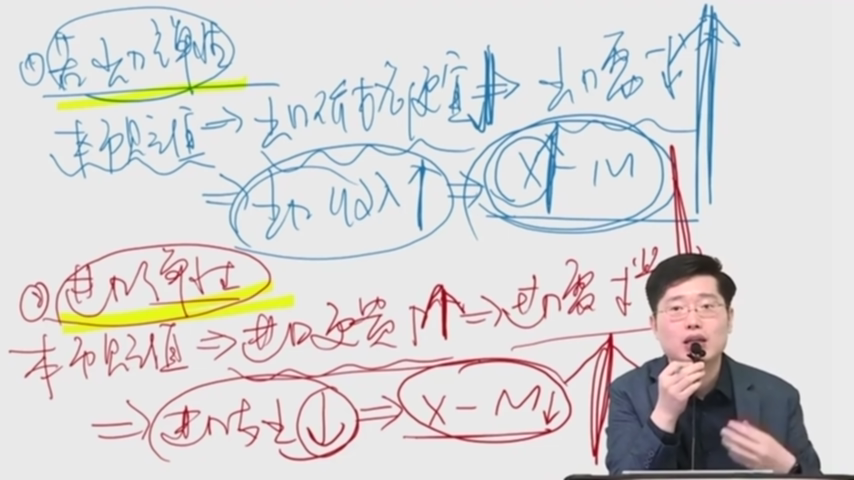 ① 若出口弹性
本币贬值 ⇒ 出口价格便宜 ⇒ 出口需求
⇒ 出口收入↑ ⇒ X - M
② 进口弹性
本币贬值 ⇒ 进口更贵 ↑ ⇒ 进口需求
⇒ 进口支出↓ ⇒ X - M↓